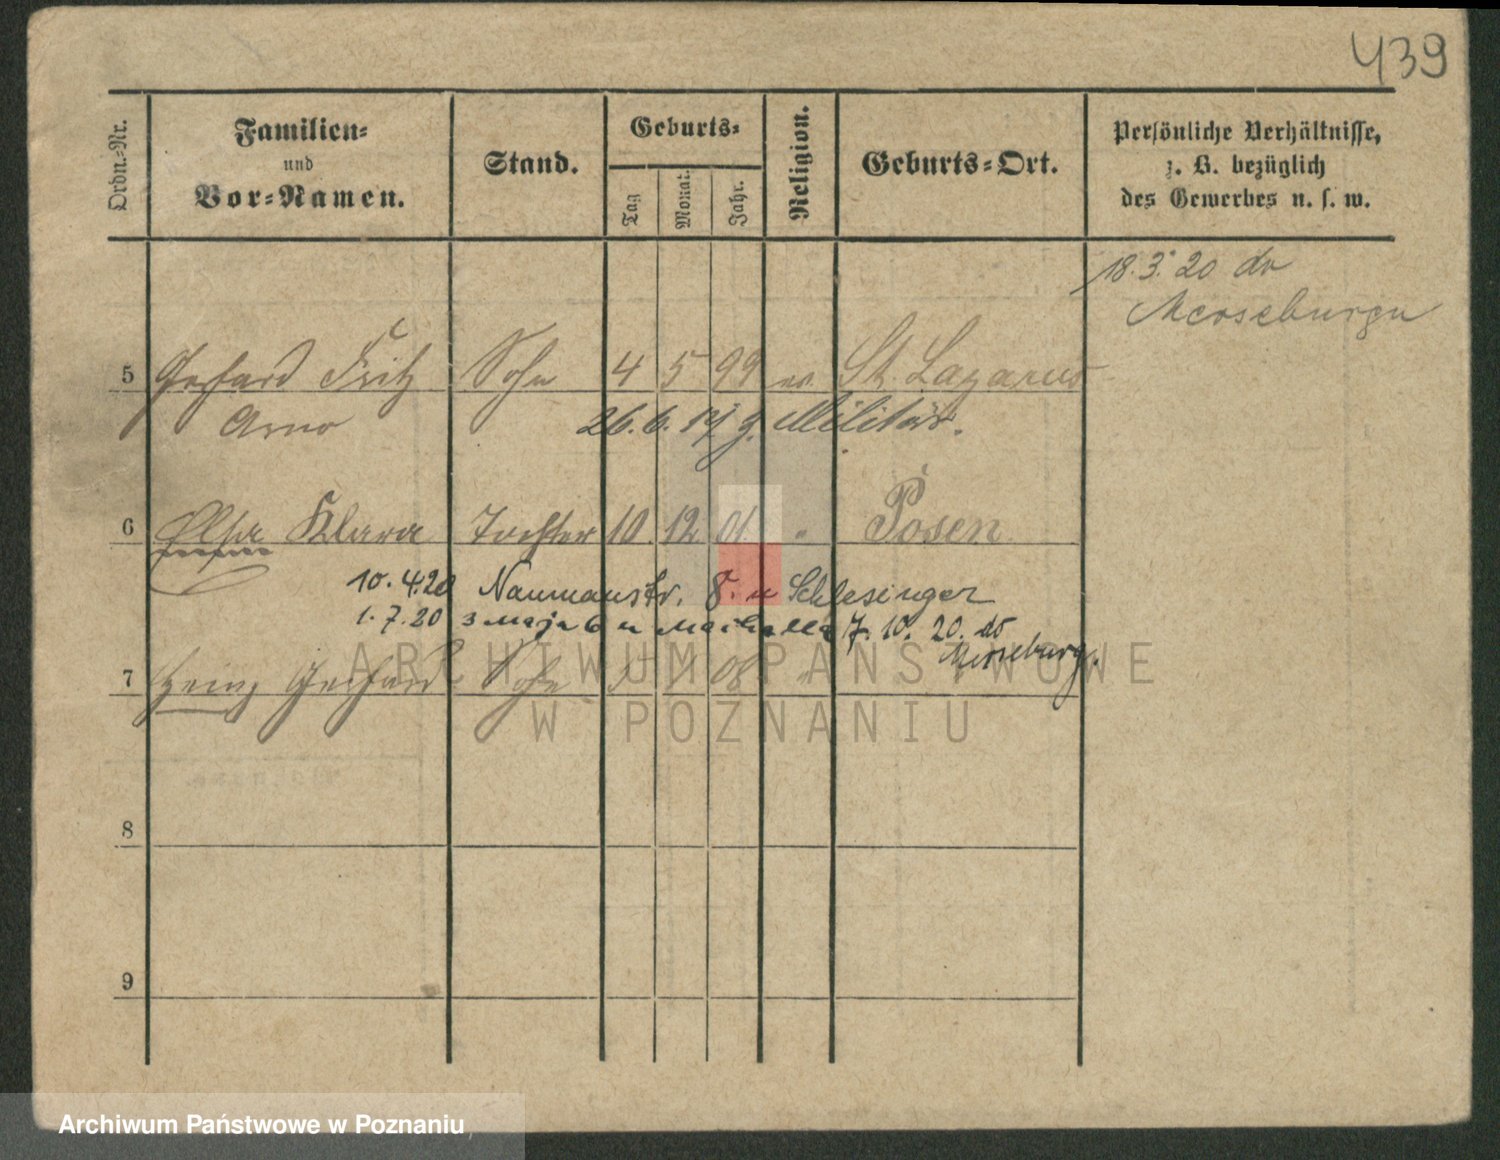 439
Ordn.-Nr.
Familien-
und
Vor-Namen.
Stand.
Geburts-
Tag
Monat.
Jahr.
Religion.
Geburts-Ort.
Persönliche Verhältnisse,
z. B. bezüglich
des Gewerbes u. s. w.
18. 3. 20 do
Merseburg
5 Gerhard Fritz Sohn 4 5 99 ev. St. Lazarus
Arno 26. 6. 17 z. Militär.
6 Elsa Klara Tochter 10. 12. 01. " Posen
10. 4. 20 Naumannstr. 8. u Schlesinger
1. 7. 20 3 Maja 6 u 7. 10. 20. do
Merseburg.
7 Heinz Gerhard Sohn 1 08 "
8
9
ARCHIWUM PAŃSTWOWE
W POZNANIU
Archiwum Państwowe w Poznaniu